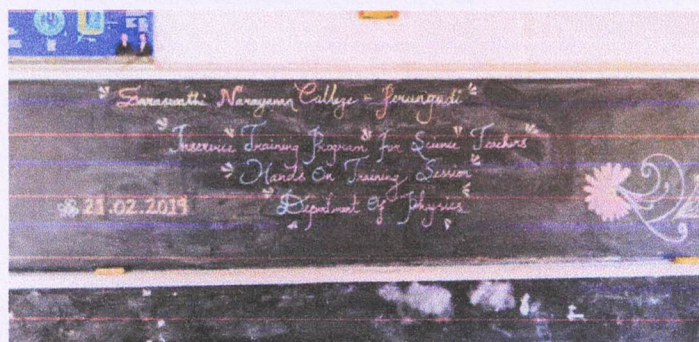 Saraswathi Narayanan College - Perungudi
Inservice Training Program for Science Teachers
Hands On Training Session
21.02.2019
Department Of Physics